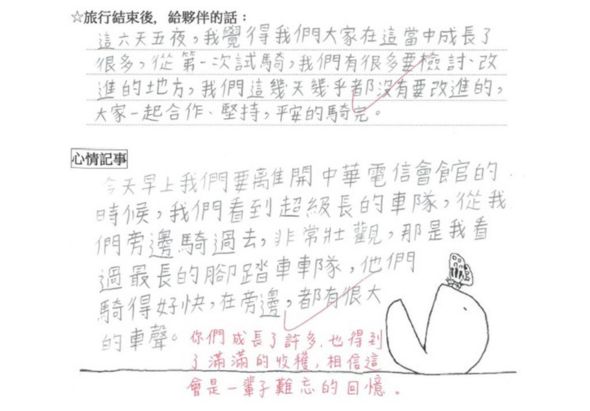 ☆旅行結束後，給夥伴的話：
這六天五夜，我覺得我們大家在這當中成長了
很多，從第一次試騎，我們有很多要檢討、改
進的地方，我們這幾天幾乎都沒有要改進的，
大家一起合作、堅持，平安的騎完。
心情記事
今天早上我們要離開中華電信會館的
時候，我們看到超級長的車隊，從我
們旁邊騎過去，非常壯觀，那是我看
過最長的腳踏車車隊，他們
騎得好快，在旁邊，都有很大
的車聲。
你們成長了許多，也得到
了滿滿的收穫，相信這
會是一輩子難忘的回憶。